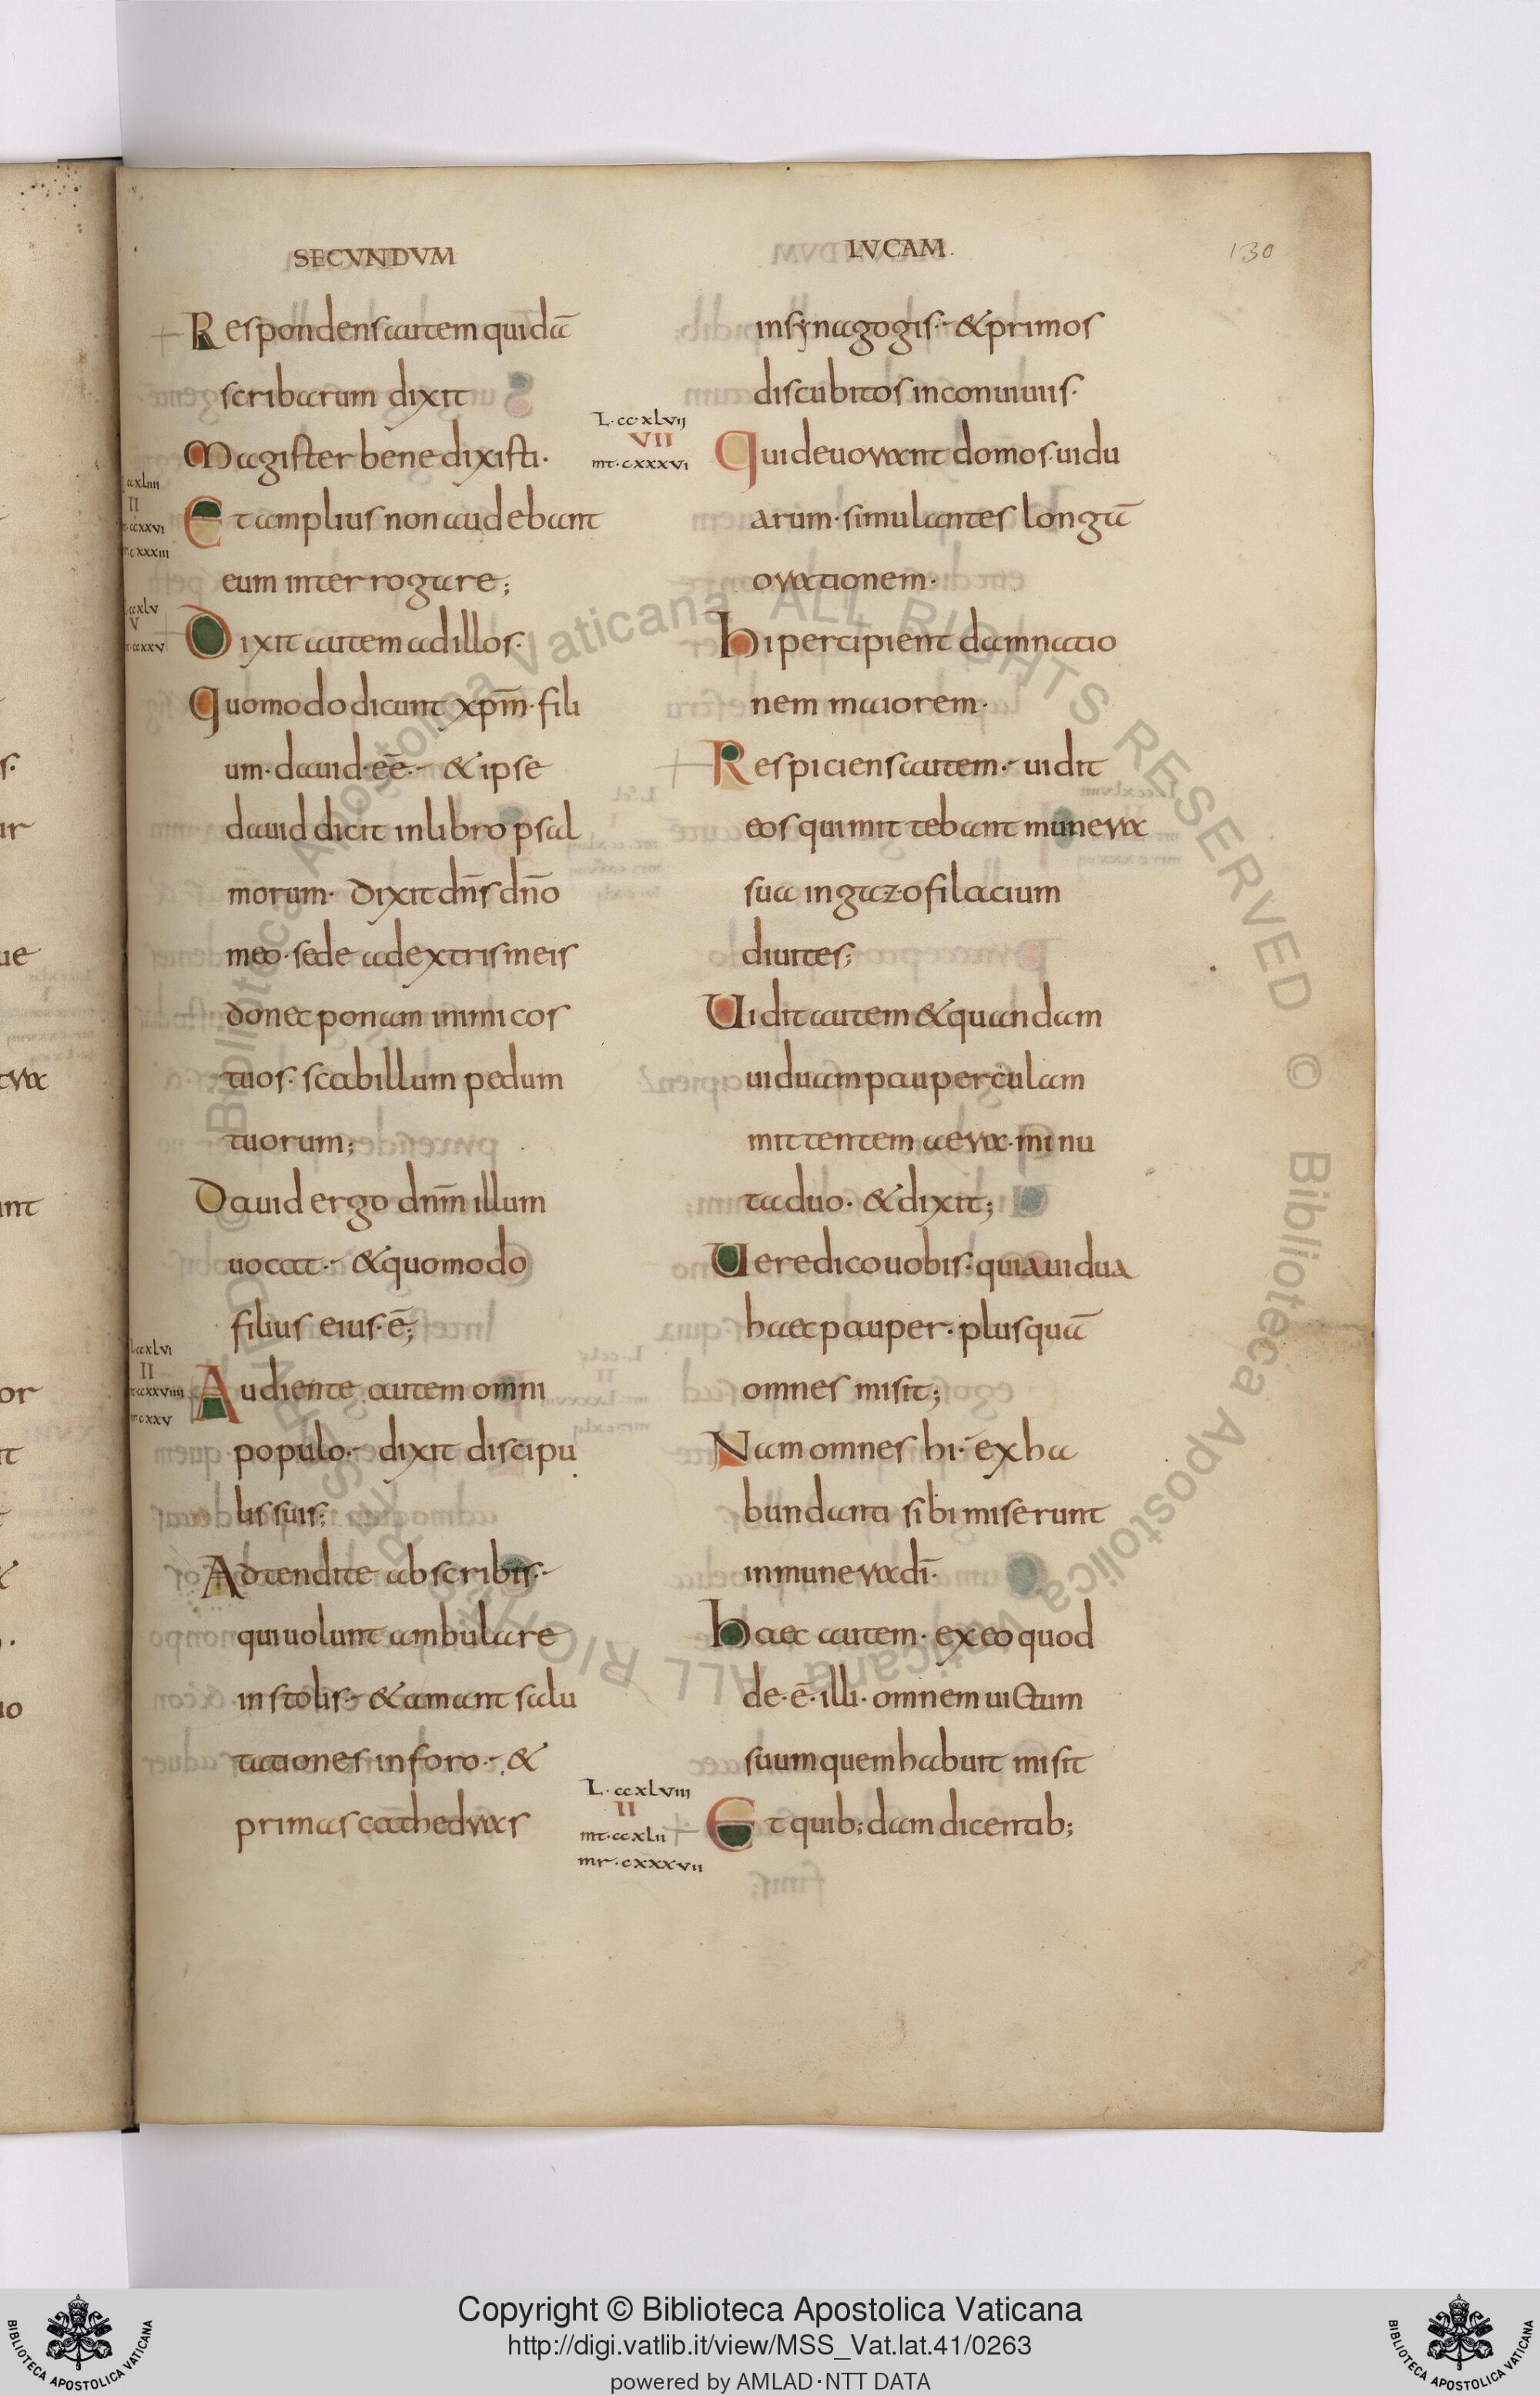 SECVNDVM
LVCAM.
130
Respondens autem quidā
scribarum dixit
Magister bene dixisti·
Et amplius non audebant
eum interrogare;
Dixit autem ad illos·
Quomodo dicunt xp̄m· fili
um· dauid· eē·- & ipse
dauid dicit in libro psal
morum· dixit dn̄s dn̄o
meo· sede a dextris meis
donec ponam inimicos
tuos· scabillum pedum
tuorum;
Dauid ergo dn̄m illum
uocat·- & quomodo
filius eius· ē;
Audiente autem omni
populo·- dixit discipu
lis suis;
Adtendite ab scribis·-
qui uolunt ambulare
in stolis·- & amant salu
tationes in foro·- &
primas cathedras
L·cc·xlvij
VII
mt·cxxxvi
L·ccxlviii
II
mt·ccxlii
mr·cxxxvii
in synagogis·- & primos
discubitos in conuiuiis·
Qui deuorant domos uidu
arum· simulantes longā
orationem·
hi percipient damnatio
nem maiorem·
Respiciens autem·- uidit
eos qui mittebant munera
sua in gazofilacium
diuites;
Uidit autem & quandam
uiduam pauperculam
mittentem aera· minu
ta duo· & dixit;
Uere dico uobis· quia uidua
haec pauper· plus quā
omnes misit;
Nam omnes hi·- ex ha
bundanti sibi miserunt
in munera dī·
haec autem· ex eo quod
de·ē· illi· omnem uictum
suum quem habuit misit
Et quib; dam dicentib;
Biblioteca Apostolica Vaticana ALL RIGHTS RESERVED ©
Copyright © Biblioteca Apostolica Vaticana
http://digi.vatlib.it/view/MSS_Vat.lat.41/0263
powered by AMLAD·NTT DATA
BIBLIOTECA APOSTOLICA VATICANA
BIBLIOTECA APOSTOLICA VATICANA